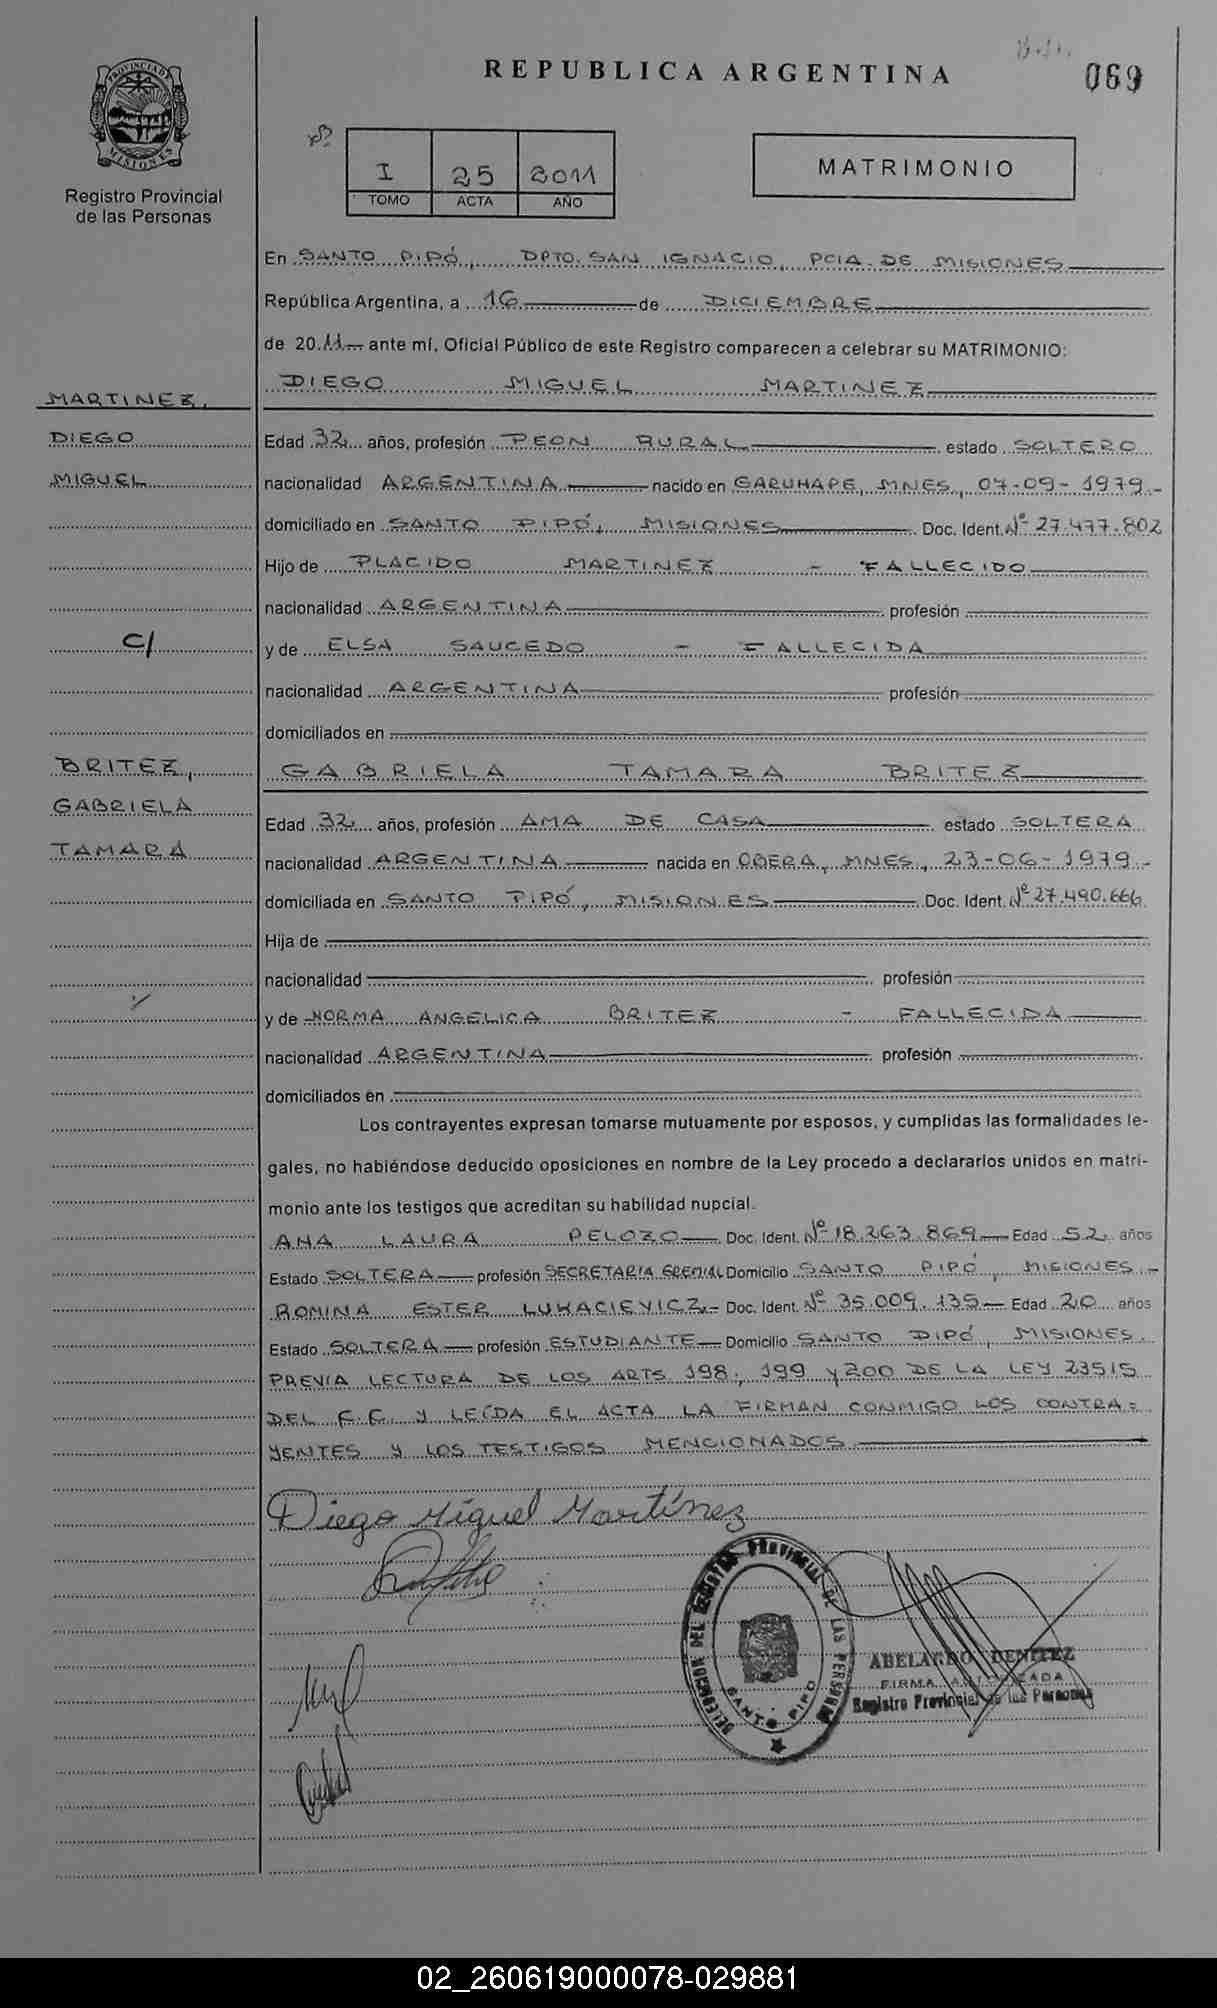 REPUBLICA ARGENTINA
069
PROVINCIA DE MISIONES
Registro Provincial
de las Personas
I 25 2011
TOMO ACTA AÑO
MATRIMONIO
En SANTO PIPÓ, DPTO. SAN IGNACIO, PCIA. DE MISIONES
República Argentina, a 16 de DICIEMBRE
de 2011 ante mí, Oficial Público de este Registro comparecen a celebrar su MATRIMONIO:
DIEGO MIGUEL MARTINEZ
MARTINEZ,
DIEGO
MIGUEL
C/
BRITEZ,
GABRIELA
TAMARA
Edad 32 años, profesión PEON RURAL estado SOLTERO
nacionalidad ARGENTINA nacido en GARUHAPE, MNES, 07-09-1979-
domiciliado en SANTO PIPÓ, MISIONES Doc. Ident. Nº 27.477.802
Hijo de PLACIDO MARTINEZ - FALLECIDO
nacionalidad ARGENTINA profesión
y de ELSA SAUCEDO - FALLECIDA
nacionalidad ARGENTINA profesión
domiciliados en
GABRIELA TAMARA BRITEZ
Edad 32 años, profesión AMA DE CASA estado SOLTERA
nacionalidad ARGENTINA nacida en OBERA, MNES, 23-06-1979-
domiciliada en SANTO PIPÓ, MISIONES Doc. Ident. Nº 27.490.666
Hija de
nacionalidad profesión
y de NORMA ANGELICA BRITEZ - FALLECIDA
nacionalidad ARGENTINA profesión
domiciliados en
Los contrayentes expresan tomarse mutuamente por esposos, y cumplidas las formalidades le-
gales, no habiéndose deducido oposiciones en nombre de la Ley procedo a declararlos unidos en matri-
monio ante los testigos que acreditan su habilidad nupcial.
ANA LAURA PELOZO Doc. Ident. Nº 18.263.869 Edad 52 años
Estado SOLTERA profesión SECRETARIA GREMIAL Domicilio SANTO PIPÓ, MISIONES-
ROMINA ESTER LUKACIEVICZ- Doc. Ident. Nº 35.009.135 Edad 20 años
Estado SOLTERA profesión ESTUDIANTE Domicilio SANTO PIPÓ, MISIONES.
PREVIA LECTURA DE LOS ARTS 198, 199 Y 200 DE LA LEY 23515
DEL C.C. Y LEÍDA EL ACTA LA FIRMAN CONMIGO LOS CONTRA=
YENTES Y LOS TESTIGOS MENCIONADOS
Diego Miguel Martínez
DELEGACION DEL REGISTRO PROVINCIAL DE LAS PERSONAS
SANTO PIPO
ABELARDO BENITEZ
FIRMA AUTORIZADA
Registro Provincial de las Personas
02_260619000078-029881